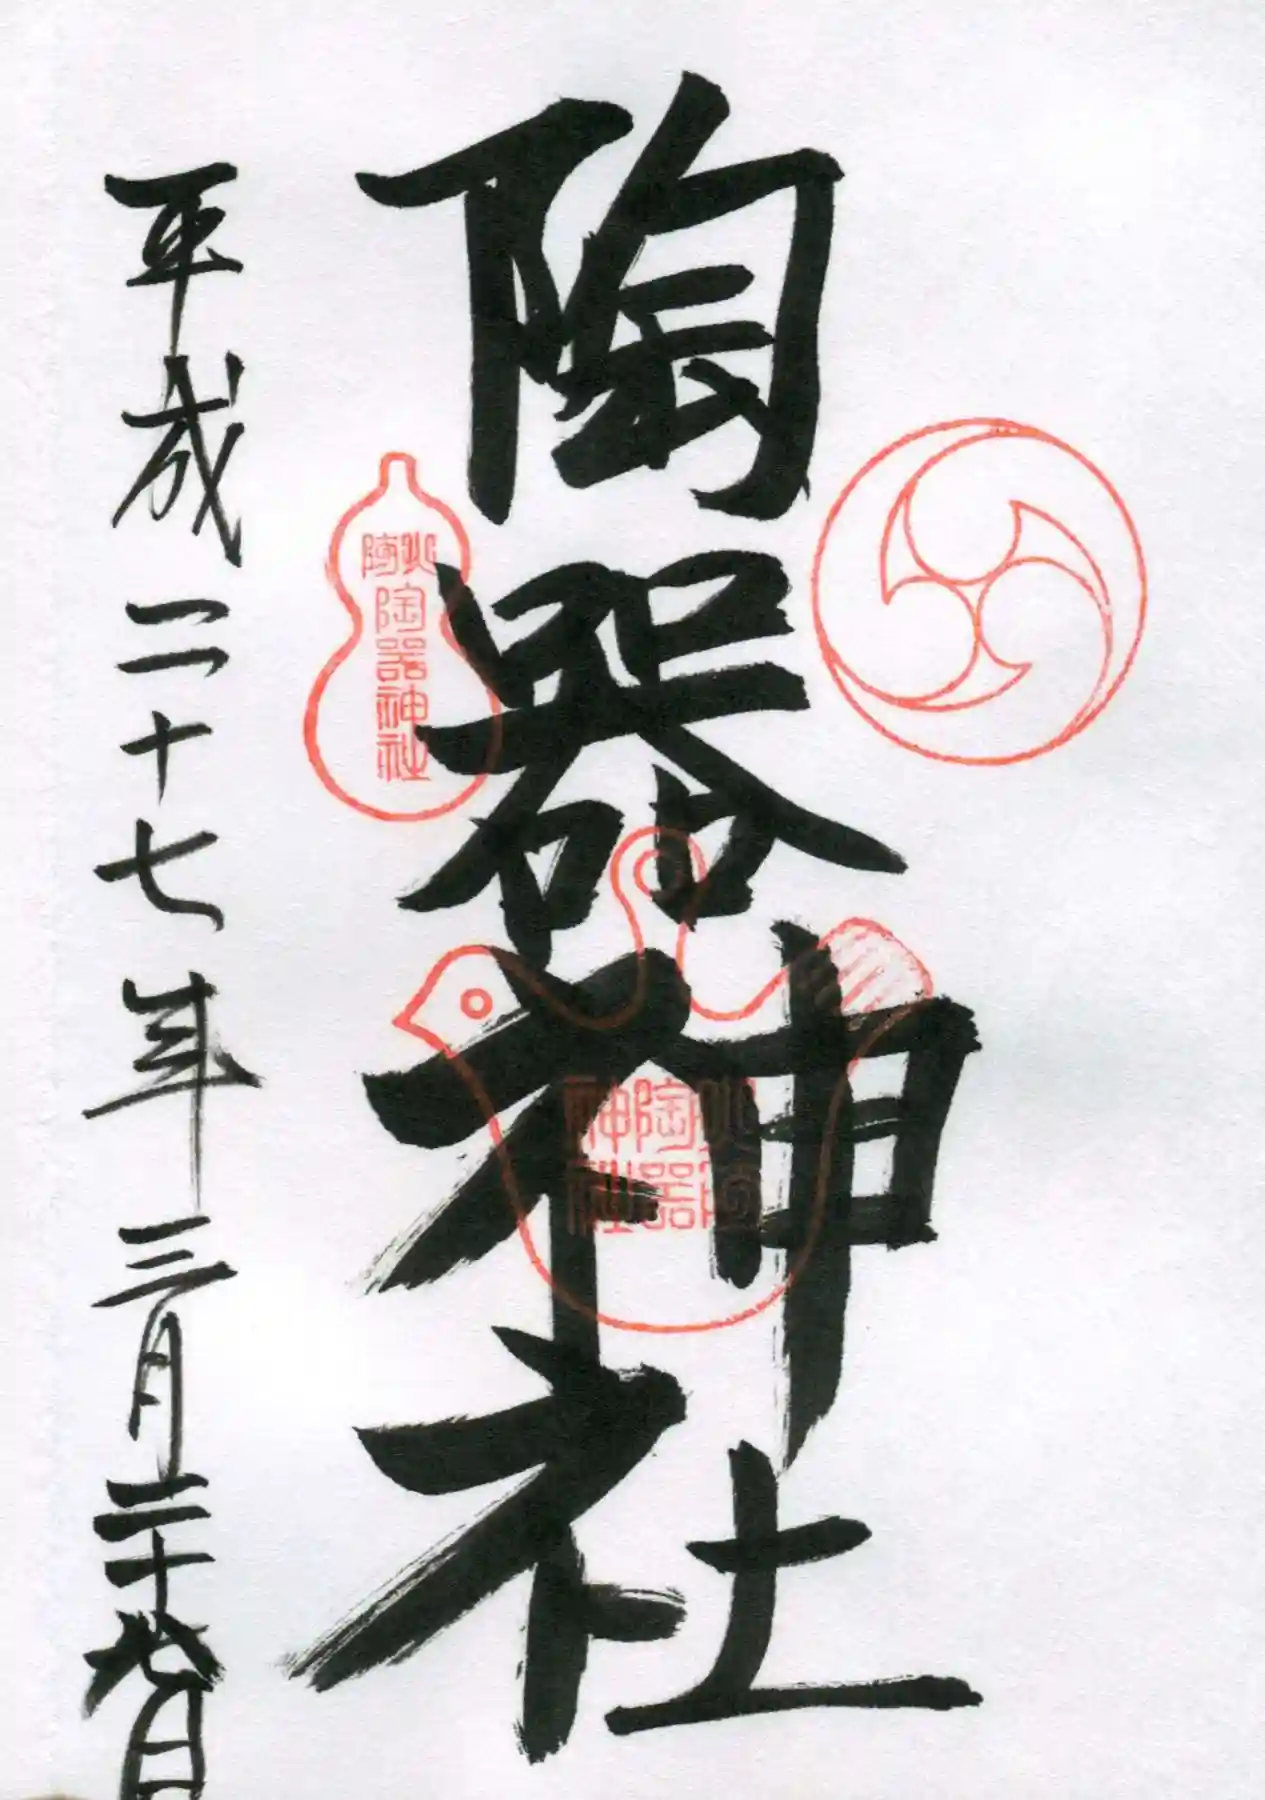 陶器神社
火防
陶器
神社
火防
陶器神社
平成二十七年三月二十日